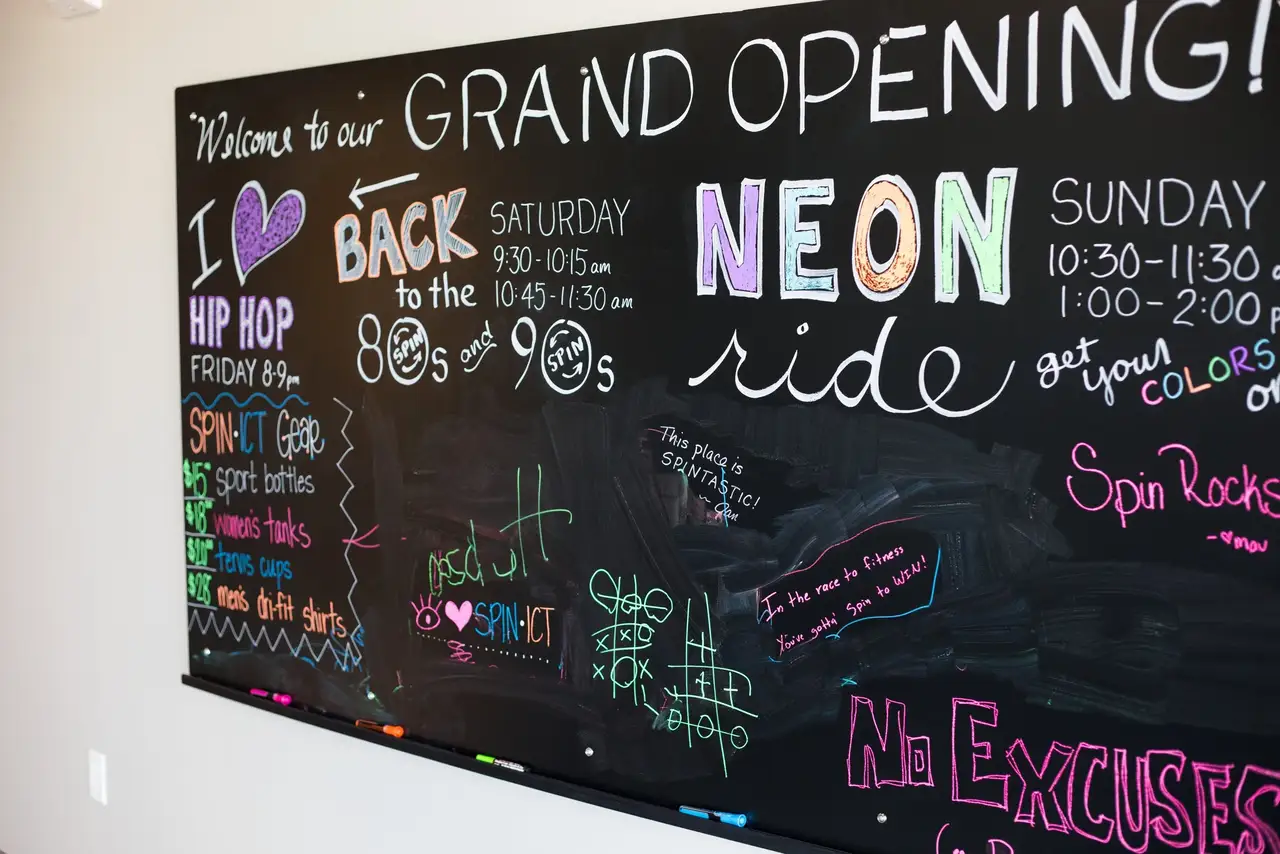 "Welcome to our GRAND OPENING!
I
HIP HOP
FRIDAY 8-9pm
BACK
to the
80s and 90s
SPIN
SPIN
SATURDAY
9:30-10:15 am
10:45-11:30 am
NEON
ride
SUNDAY
10:30-11:30
1:00-2:00
get your
COLORS
on
SPIN·ICT Gear
$15 sport bottles
$18 women's tanks
tervis cups
$28 men's dri-fit shirts
This place is
SPINTASTIC!
~ Jan
Spin Rocks
In the race to fitness
You've gotta' Spin to WIN!
SPIN·ICT
No Excuses